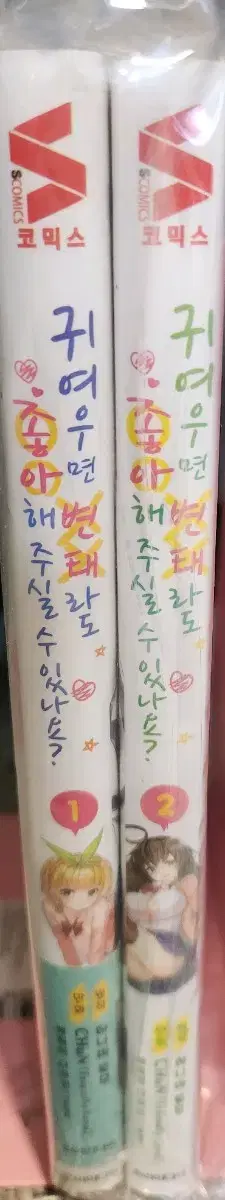 S COMICS
코믹스
귀여우면 변태라도
좋아해 주실 수 있나요?
1
CHuN
S COMICS
코믹스
귀여우면 변태라도
좋아해 주실 수 있나요?
2
CHuN